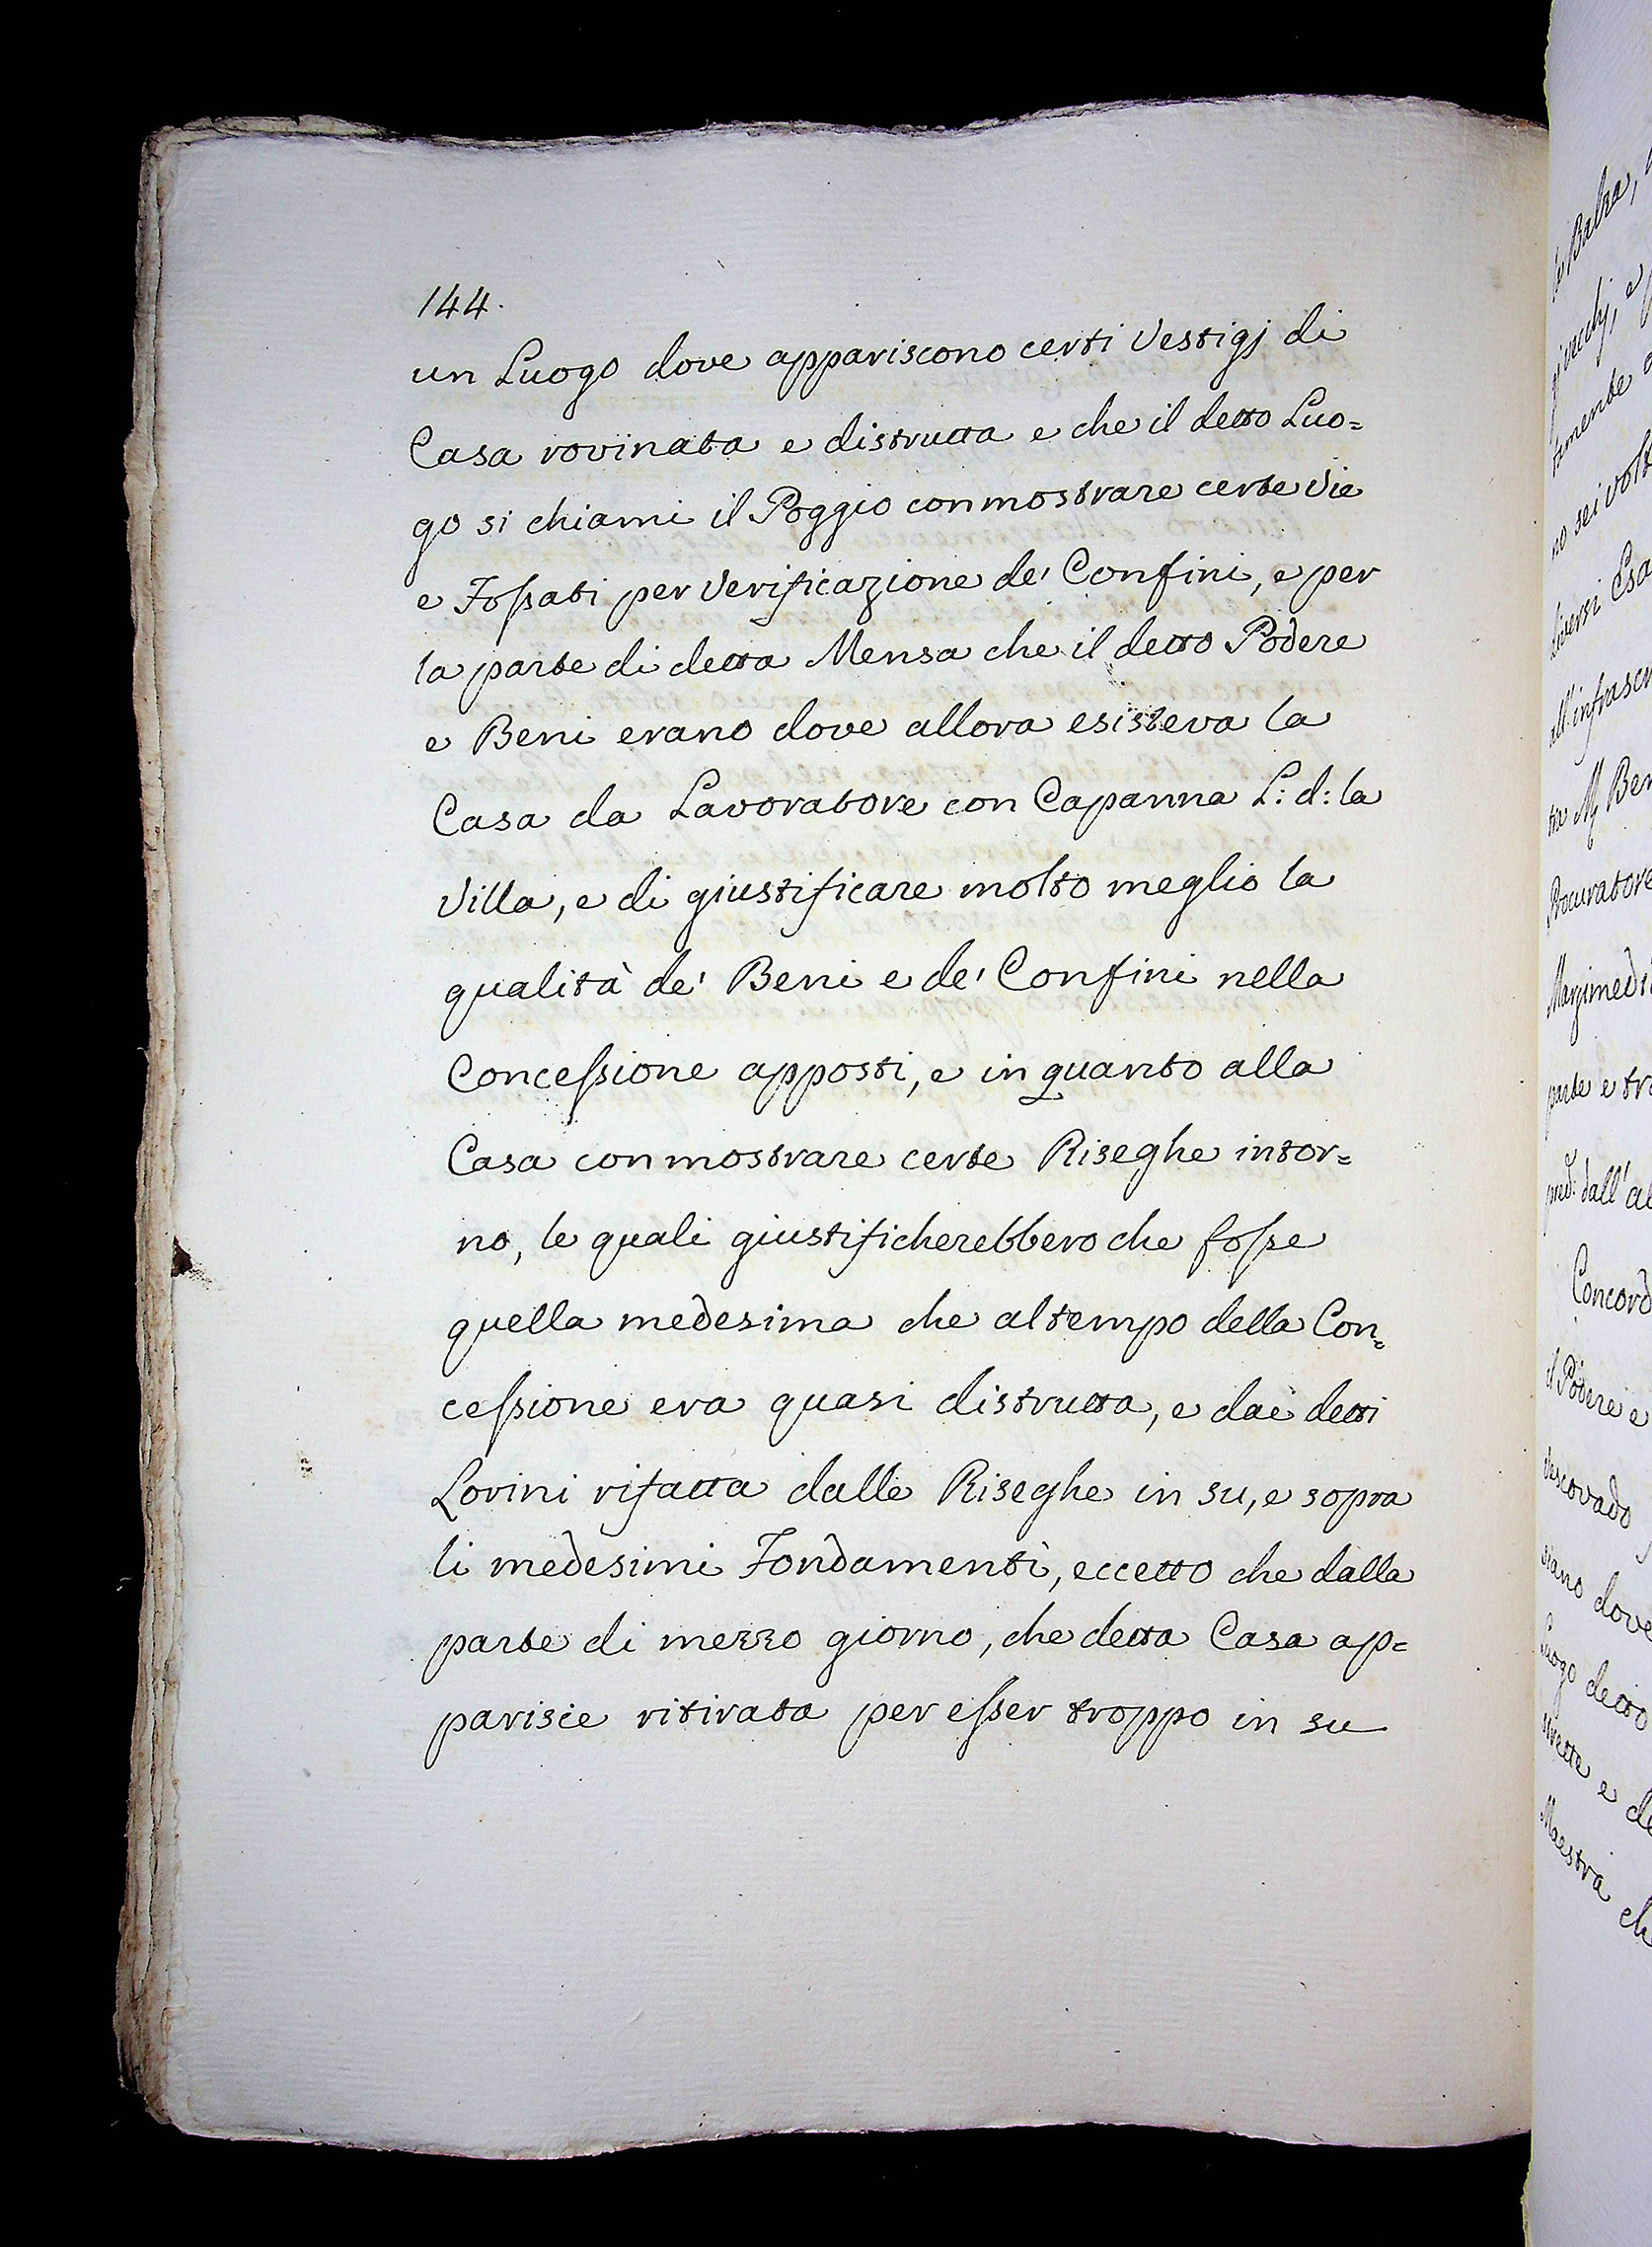 144.
un Luogo dove appariscono certi Vestigj di
Casa rovinata e distrutta e che il detto Luo=
go si chiami il Poggio con mostrare certe Vie
e Fossati per Verificazione de' Confini, e per
la parte di detta Mensa che il detto Podere
e Beni erano dove allora esisteva la
Casa da Lavoratore con Capanna L: d: la
Villa, e di giustificare molto meglio la
qualità de' Beni e de' Confini nella
Concessione apposti, e in quanto alla
Casa con mostrare certe Riseghe intor=
no, le quali giustificherebbero che fosse
quella medesima che al tempo della Con=
cessione era quasi distrutta, e dai detti
Lorini rifatta dalle Riseghe in su, e sopra
li medesimi Fondamenti, eccetto che dalla
parte di mezzo giorno, che detta Casa ap=
parisce ritirata per esser troppo in su
Balza,
tamente
diversi
Procuratore
parte e
dall'
il Podere e
siano dove
Luogo detto
Maestra